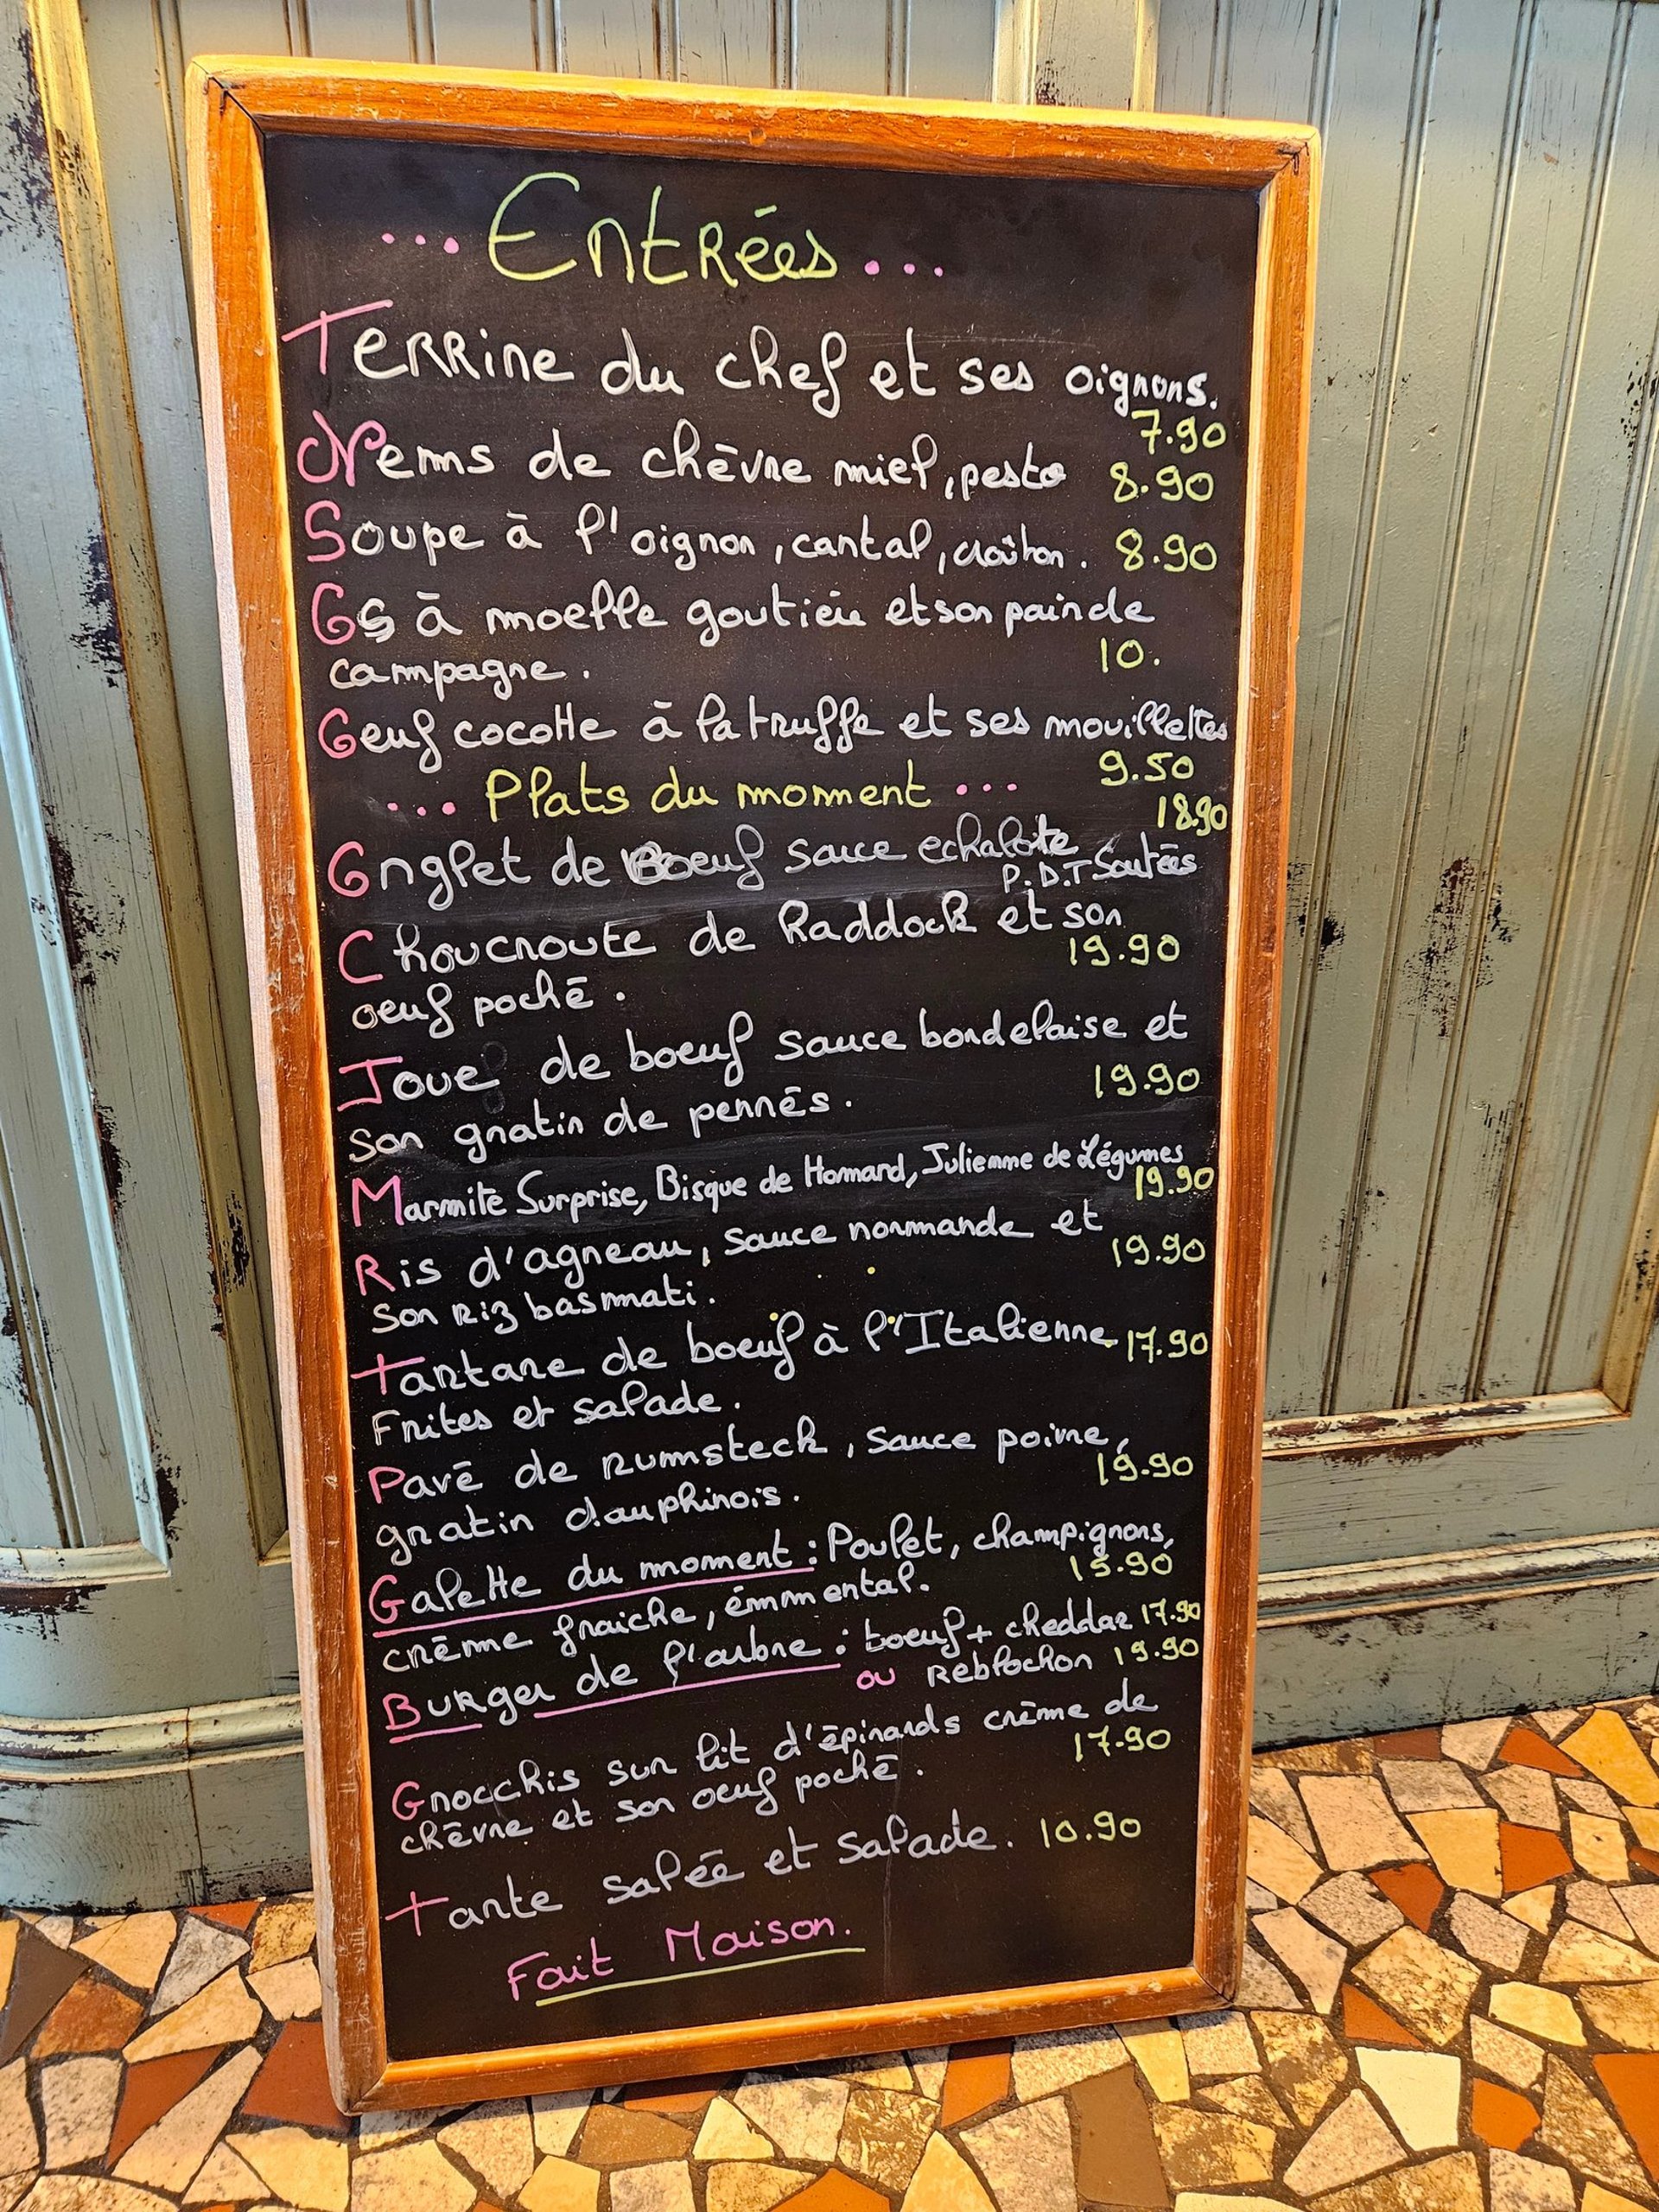 ... Entrées ...
Terrine du chef et ses oignons.
7.90
Nems de chèvre miel, pesto 8.90
Soupe à l'oignon, cantal, croûton. 8.90
Os à moelle goutière et son pain de
campagne. 10.
Oeuf cocotte à la truffe et ses mouillettes
9.50
... Plats du moment ...
18.90
Onglet de Boeuf sauce echalote
P.D.T Sautées
Choucroute de Haddock et son
19.90
oeuf poché.
Joue de boeuf sauce bordelaise et
19.90
son gratin de pennés.
Marmite Surprise, Bisque de Homard, Julienne de Légumes
19.90
Ris d'agneau, sauce normande et
19.90
son Riz basmati.
tartare de boeuf à l'Italienne 17.90
Frites et salade.
Pavé de rumsteck, sauce poivre,
19.90
gratin dauphinois.
Galette du moment : Poulet, champignons,
15.90
crème fraiche, émmental.
Burger de l'arbre : boeuf + cheddar 17.90
ou Reblochon 19.90
Gnocchis sur lit d'épinards crème de
17.90
chèvre et son oeuf poché.
tarte salée et salade. 10.90
Fait Maison.